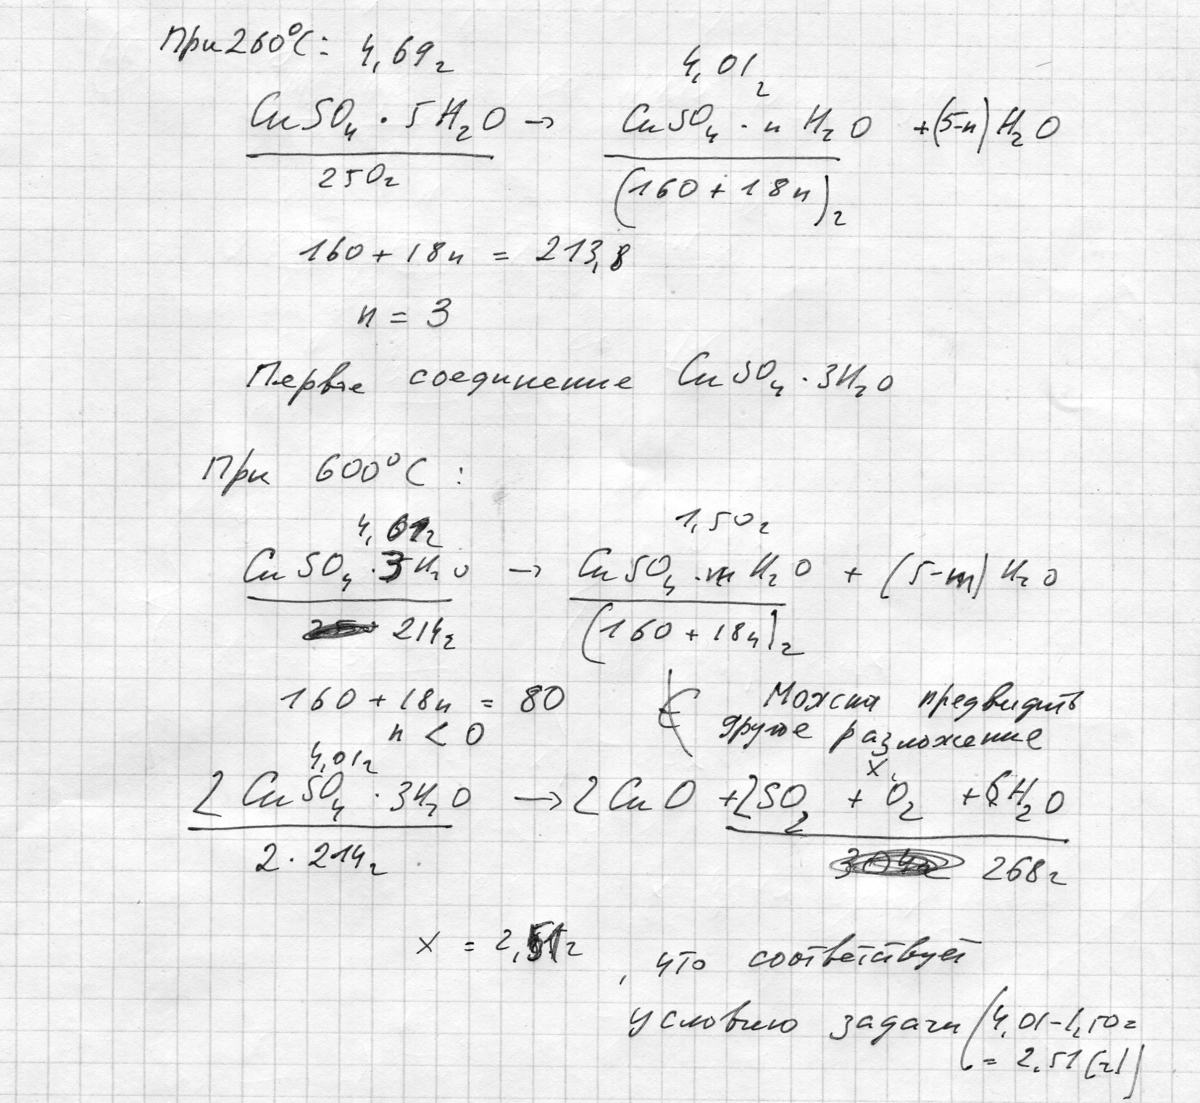 При 260°C:
4,69г 4,01г
CuSO₄ · 5H₂O → CuSO₄ · n H₂O + (5-n) H₂O
250г (160 + 18n)г
160 + 18n = 213,8
n = 3
Первое соединение CuSO₄ · 3H₂O
При 600°C:
4,01г 1,50г
CuSO₄ · 3H₂O → CuSO₄ · m H₂O + (5-m) H₂O
214г (160 + 18n)г
160 + 18n = 80
n < 0
Можно предвидить
другое разложение
4,01г x
2 CuSO₄ · 3H₂O → 2 CuO + 2SO₂ + O₂ + 6H₂O
2 · 214г 268г
x = 2,51г, что соответствует
условию задачи (4,01-1,50г
= 2,51(г))